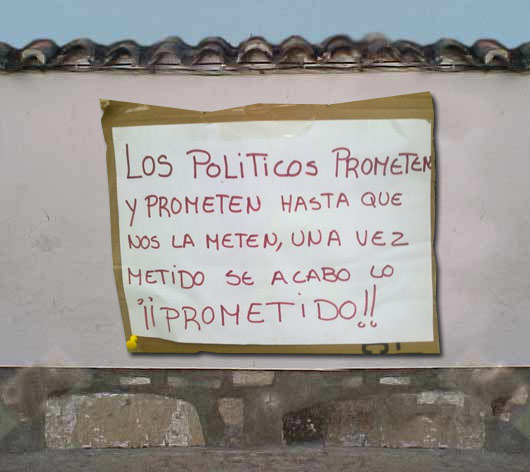 LOS POLITICOS PROMETEN
Y PROMETEN HASTA QUE
NOS LA METEN, UNA VEZ
METIDO SE ACABO LO
¡¡PROMETIDO!!